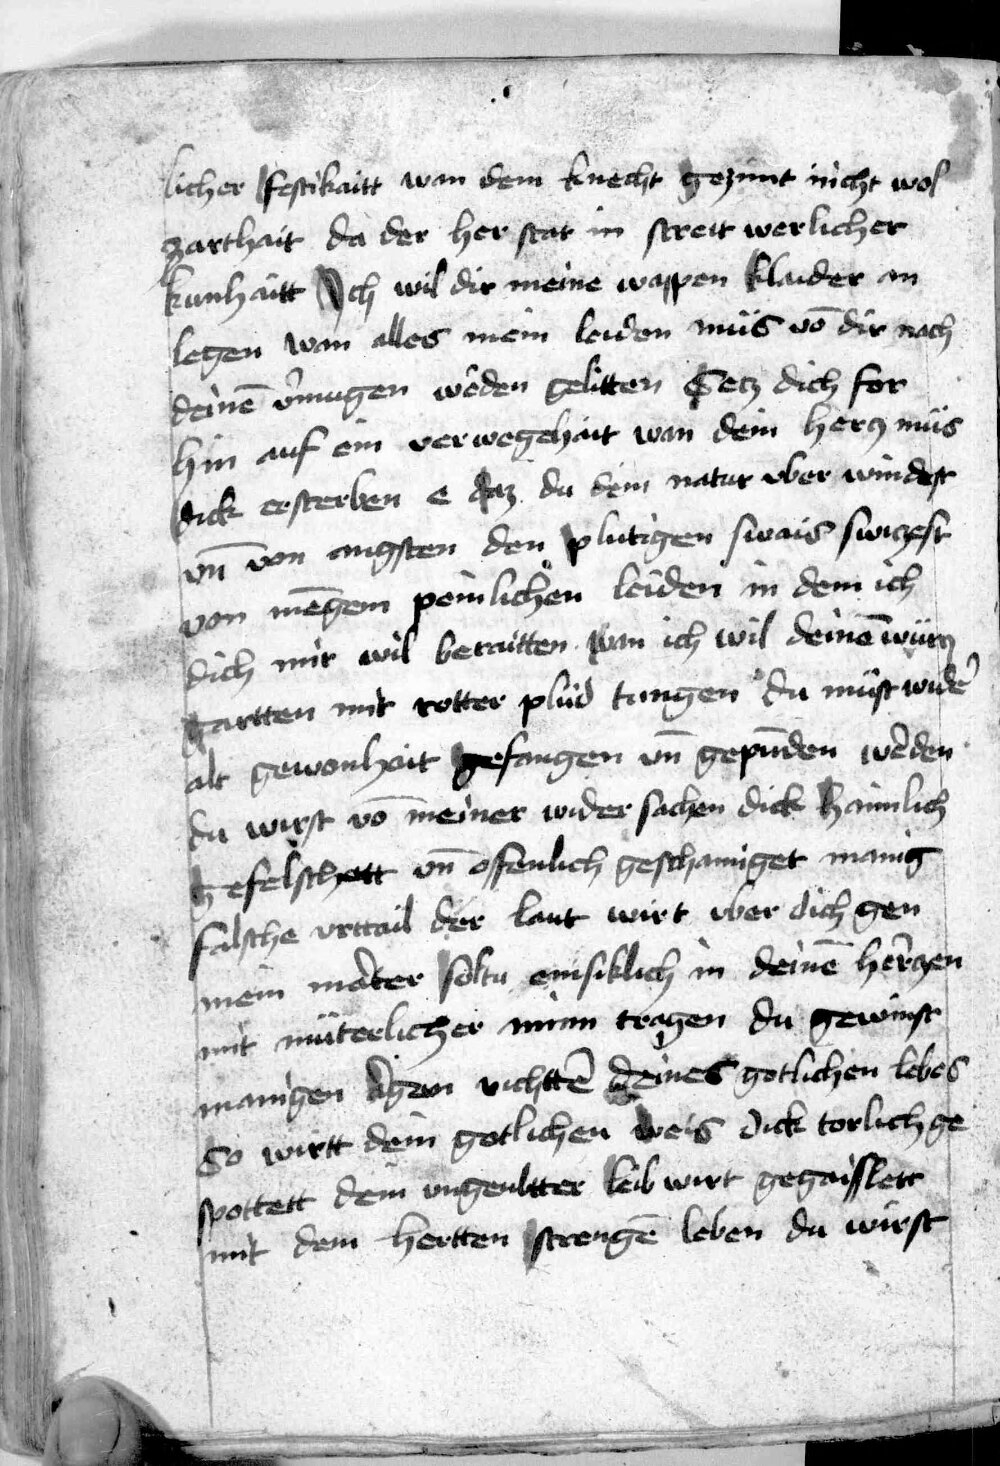 licher festikaitt wan dem knecht gezimt nicht wol
zarthait da der her stat in streit werlicher
kunhaitt Ich wil dir meine wappen klaider an
legen wan alles mein leiden müs vō dir nach
deinē v̉mugen wẻden gelitten Setz dich for
hin auf ein verwegehait wan dein hercz müs
dick ersterben e daz du dein natur vber windest
vn̄ von angsten den plutigen swais swiczest
von mēgem peinlichen leiden in dem ich
dich mir wil beraitten wan ich wil deinē würcz
gartten mit rotter plüd tungen du müst widẻ
alt gewonhait gefangen vn̄ gepūden wẻden
du wirst vō meiner wider sachen dick haimlich
gefelschett vn̄ offenlich geschamiget manig
falsche vrttail der laut wirt vber dich gen
mein mảter soltu emsiklich in deinē hẻrczen
mit müterlicher minn tragen du gewinst
manigen ảgen richttẻ deines gotlichen lebēs
So wirtt dein gotlichen weis dick torlich ge
spottett dein vngeubtter leib wirt gegaislett
mit dem hertten strengē leben du wirst